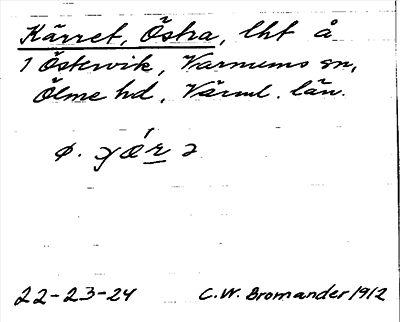 Kärret, Östra, lht å
1 Östervik, Varnums sn,
Ölme hd, Värml. län.
ø.
22-23-24 C.W. Bromander 1912